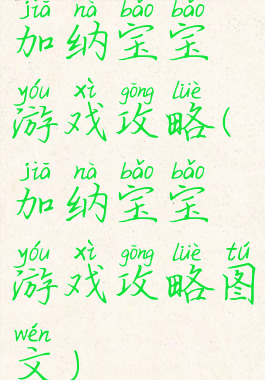 jiā nà bǎo bǎo
加纳宝宝
yóu xì gōng lüè
游戏攻略(
jiā nà bǎo bǎo
加纳宝宝
yóu xì gōng lüè tú
游戏攻略图
wén
文)